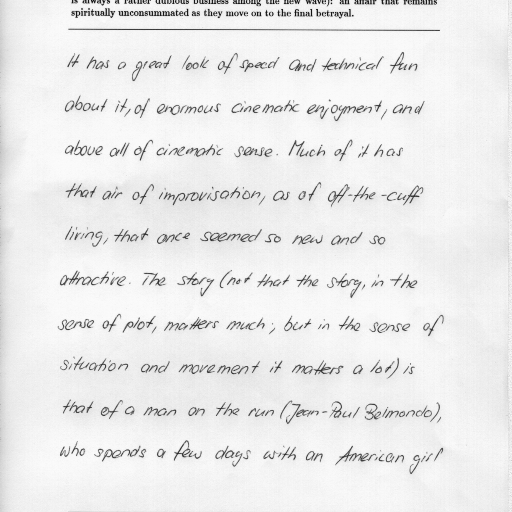 is always a rather dubious business among the new wave): an affair that remains
spiritually unconsummated as they move on to the final betrayal.
It has a great look of speed and technical fun
about it, of enormous cinematic enjoyment, and
above all of cinematic sense. Much of it has
that air of improvisation, as of off-the-cuff
living, that once seemed so new and so
attractive. The story (not that the story, in the
sense of plot, matters much; but in the sense of
situation and movement it matters a lot) is
that of a man on the run (Jean-Paul Belmondo),
who spends a few days with an American girl